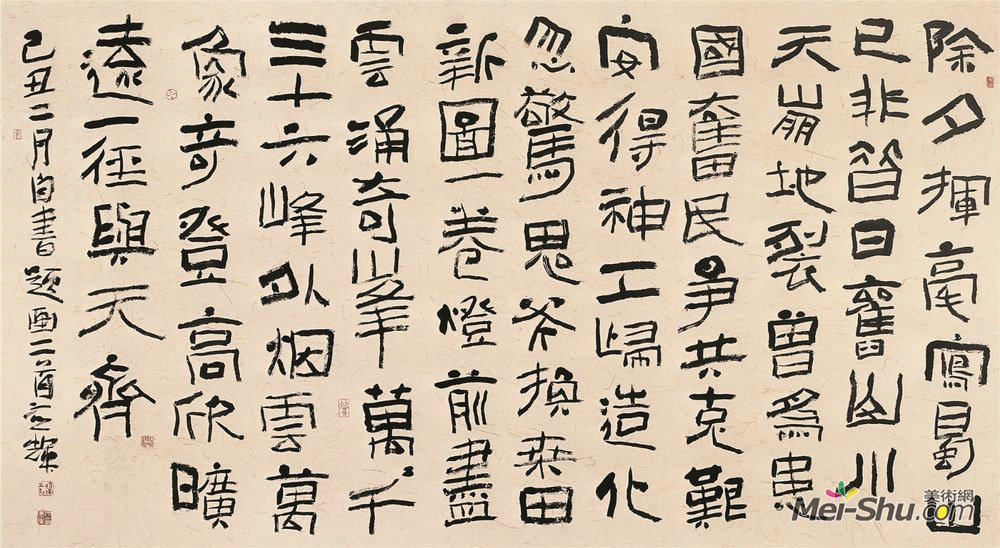 除夕揮毫寫蜀山
已非昔日舊山川
天崩地裂曾爲患
國奮民爭共克艱
安得神工歸造化
忽驚鬼斧換桒田
新圖一卷燈前盡
雲涌奇峯萬々千
三十六峰外烟雲萬
象奇登高欣曠
遠一徑與天齊
己丑二月自書題画二首
美術網
Mei-Shu.com